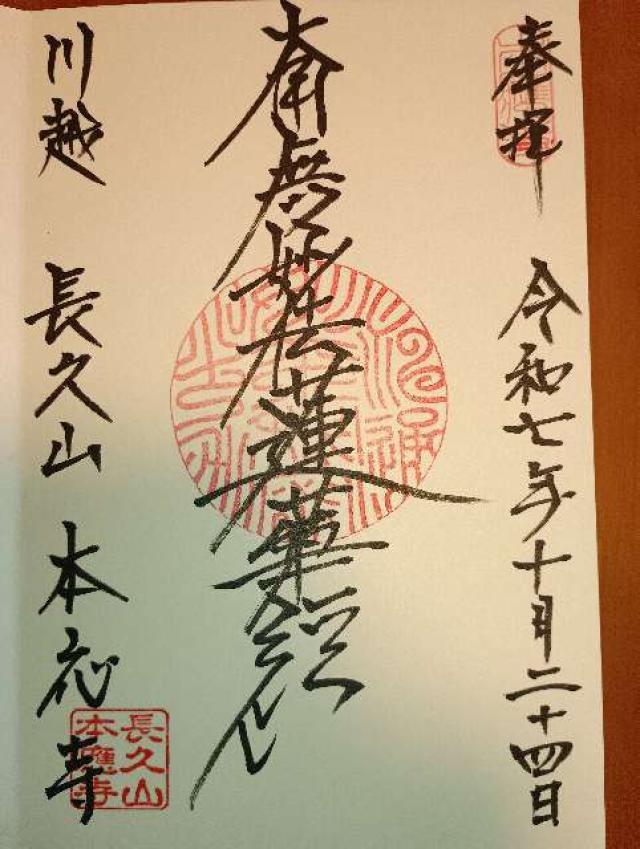 奉拝
令和七年十月二十四日
南無妙法蓮華経
川越
長久山
本応寺
長久山
本應寺